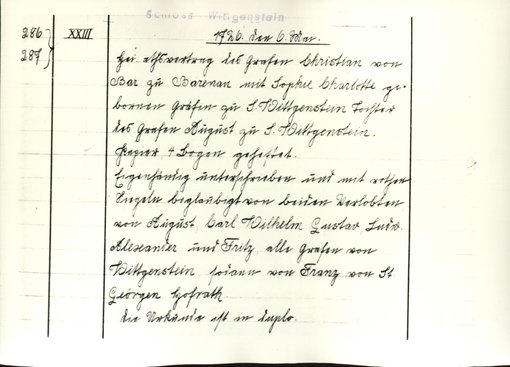 Schloss Wittgenstein
286 XXIII 1726. den 6. Mai.
287 Heirathsvertrag des Grafen Christian von
Bar zu Barenau mit Sophie Charlotte ge-
bornen Gräfin zu S. Wittgenstein Tochter
des Grafen August zu S. Wittgenstein.
Papier, 4 Bogen geheftet.
Eigenhändig unterschrieben und mit rothen
Siegeln beglaubigt von beiden Verlobten
von August, Carl Wilhelm Gustav Ludw.
Alexander und Fritz, alle Grafen von
Wittgenstein, sodann von Franz von St
Georgen Hofrath.
die Urkunde ist in duplo.